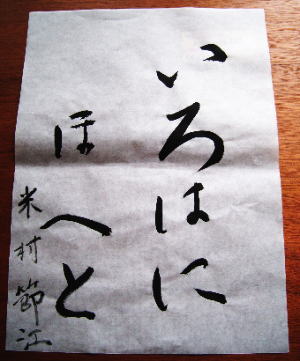 いろはに
ほへと
米村節江